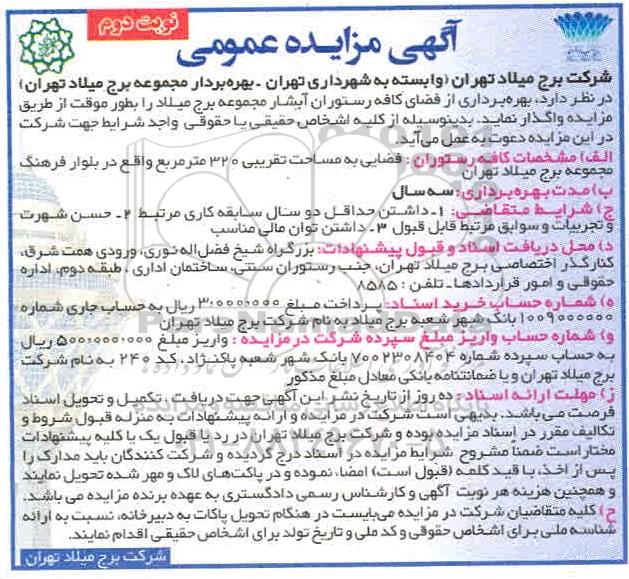 نوبت دوم
آگهی مزایده عمومی
شرکت برج میلاد تهران (وابسته به شهرداری تهران - بهره‌بردار مجموعه برج میلاد تهران)
در نظر دارد، بهره‌برداری از فضای کافه رستوران آبشار مجموعه برج میلاد را بطور موقت از طریق
مزایده واگذار نماید. بدینوسیله از کلیه اشخاص حقیقی یا حقوقی واجد شرایط جهت شرکت
در این مزایده دعوت به عمل می‌آید.
الف) مشخصات کافه رستوران : فضایی به مساحت تقریبی ۳۲۰ مترمربع واقع در بلوار فرهنگ
مجموعه برج میلاد تهران
ب) مدت بهره‌برداری: سه سال
ج) شرایط متقاضی: ۱- داشتن حداقل دو سال سابقه کاری مرتبط ۲- حسن شهرت
و تجربیات و سوابق مرتبط قابل قبول ۳- داشتن توان مالی مناسب
د) محل دریافت اسناد و قبول پیشنهادات: بزرگراه شیخ فضل‌اله نوری، ورودی همت شرق،
کنارگذر اختصاصی برج میلاد تهران، جنب رستوران سنتی، ساختمان اداری ، طبقه دوم، اداره
حقوقی و امور قراردادها - تلفن : ۸۵۸۵
ه) شماره حساب خرید اسناد: پرداخت مبلغ ۳۰۰۰۰۰۰ ریال به حساب جاری شماره
۱۰۰۹۰۰۰۰۰۰ بانک شهر شعبه برج میلاد به نام شرکت برج میلاد تهران
و) شماره حساب واریز مبلغ سپرده شرکت در مزایده : واریز مبلغ ۵۰۰،۰۰۰،۰۰۰ ریال
به حساب سپرده شماره ۷۰۰۲۳۰۸۴۰۴ بانک شهر شعبه پاکنژاد، کد ۲۴۰ به نام شرکت
برج میلاد تهران و یا ضمانتنامه بانکی معادل مبلغ مذکور
ز) مهلت ارائه اسناد : ده روز از تاریخ نشر این آگهی جهت دریافت ، تکمیل و تحویل اسناد
فرصت می‌باشد. بدیهی است شرکت در مزایده و ارائه پیشنهادات به منزله قبول شروط و
تکالیف مقرر در اسناد مزایده بوده و شرکت برج میلاد تهران در رد یا قبول یک یا کلیه پیشنهادات
مختار است ضمنا مشروح شرایط مزایده در اسناد درج گردیده و شرکت کنندگان باید مدارک را
پس از اخذ، با قید کلمه (قبول است) امضاء نموده و در پاکت‌های لاک و مهر شده تحویل نمایند
و همچنین هزینه هر نوبت آگهی و کارشناس رسمی دادگستری به عهده برنده مزایده می باشد.
ح) کلیه متقاضیان شرکت در مزایده می‌بایست در هنگام تحویل پاکات به دبیرخانه، نسبت به ارائه
شناسه ملی برای اشخاص حقوقی و کد ملی و تاریخ تولد برای اشخاص حقیقی اقدام نمایند.
شرکت برج میلاد تهران